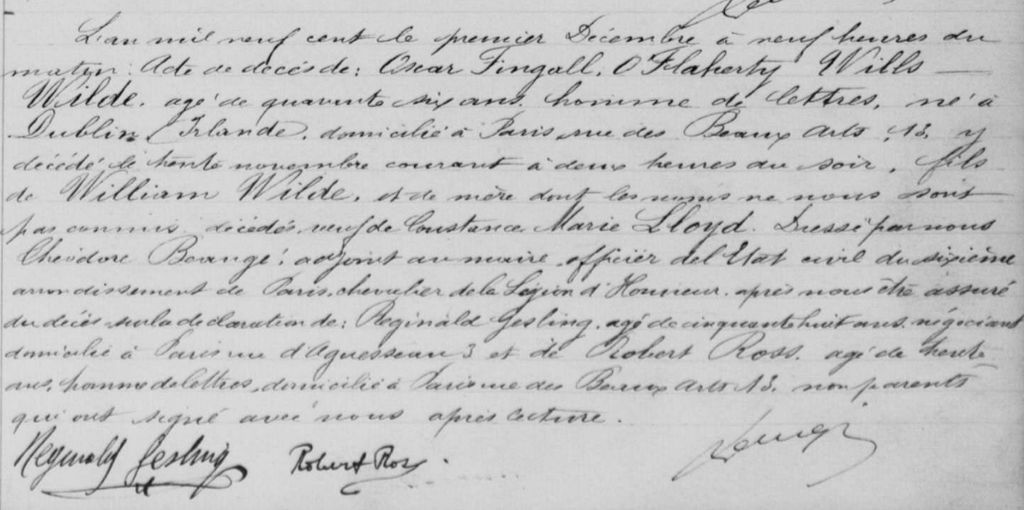 L'an mil neuf cent le premier Décembre à neuf heures du
matin. Acte de décès de: Oscar Fingall, O'Flaherty Wills
Wilde. agé de quarante six ans. homme de lettres, né à
Dublin (Irlande. domicilié à Paris rue des Beaux Arts 13, y
décédé le trente novembre courant à deux heures du soir, fils
de William Wilde, et de mère dont les noms ne nous sont
pas connus, décédés, veuf de Constance Marie Lloyd. Dressé par nous
Théodore Beangé, adjoint au maire, officier de l'Etat civil du sixième
arrondissement de Paris, chevalier de la Légion d'Honneur, après nous être assuré
du décès sur la déclaration de: Reginald Gesling, agé de cinquante huit ans, négociant
domicilié à Paris rue d'Aguesseau 3 et de Robert Ross. agé de trente
ans, homme de lettres, domicilié à Paris rue des Beaux Arts 13, non parents
qui ont signé avec nous après lecture.
Reginald Gesling Robert Ross.